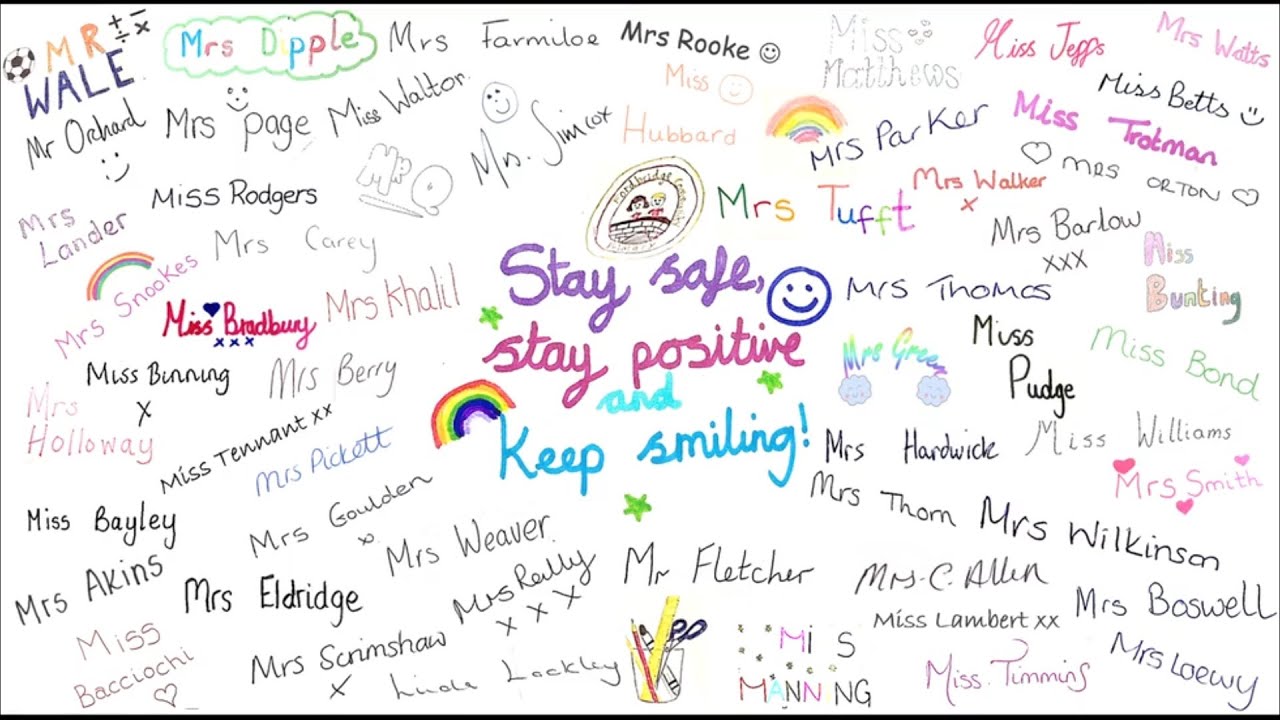 MR WALE
Mrs Dipple
Mrs Farmiloe
Mrs Rooke
Miss Matthews
Miss Jepps
Mrs Watts
Mr Orchard
Mrs Page
Miss Walton
Mrs. Simcox
Miss Hubbard
Mrs Parker
Miss Betts
Miss Trotman
Mrs Lander
Miss Rodgers
Mr Q
Mrs Tufft
Mrs Walker
x
MRS ORTON
Mrs Snookes
Mrs Carey
Mrs Barlow
xxx
Miss Bunting
Miss Bradbury
xxx
Mrs Khalil
Stay safe,
stay positive
and
Keep smiling!
Mrs Thomas
Mrs Green
Miss Pudge
Miss Bond
Mrs Holloway
Miss Binning
x
Mrs Berry
Miss Tennant xx
Mrs Pickett
Mrs Hardwick
Miss Williams
Mrs Smith
Miss Bayley
Mrs Goulden
x
Mrs Weaver
Mrs Thorn
Mrs Wilkinson
Mrs Akins
Mrs Eldridge
Mrs Reilly
x x x
Mr Fletcher
Mrs C. Allen
Miss Lambert xx
Mrs Boswell
Miss Bacciochi
Mrs Scrimshaw
x
Linda Lockley
MISS MANNING
Miss. Timmins
Mrs Loewy